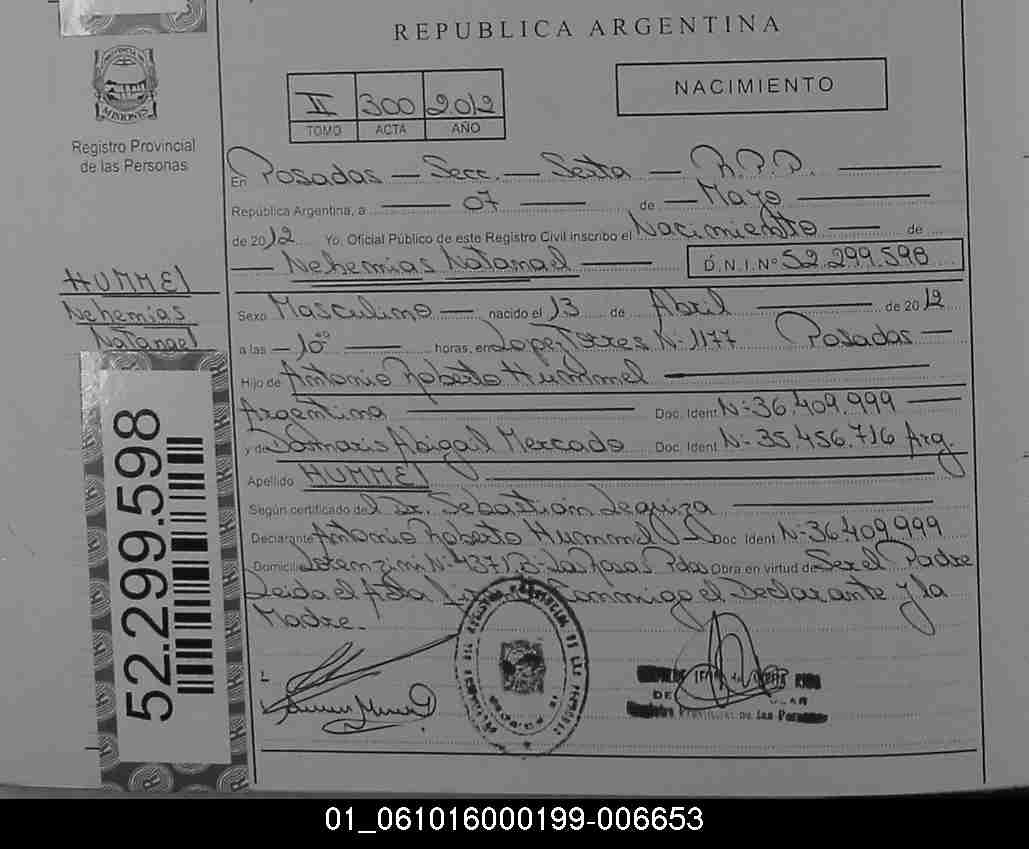 REPUBLICA ARGENTINA
PROVINCIA DE
MISIONES
Registro Provincial
de las Personas
NACIMIENTO
II 300 2012
TOMO ACTA AÑO
En Posadas — Secc. — Sexta — R.P.P.
República Argentina, a — 07 — de — Mayo
de 2012 Yo, Oficial Público de este Registro Civil inscribo el Nacimiento — de
— Nehemias Natanael — D.N.I. Nº 52.299.598
HUMMEL
Nehemias
Natanael
Sexo Masculino — nacido el 13 de Abril — de 2012
a las — 10 — horas, en Lopez Torres Nº 1177 Posadas —
Hijo de Antonio Roberto Hummel
Argentina — Doc. Ident. Nº 36.409.999 —
y de Damaris Abigail Mercado Doc. Ident. Nº 35.456.716 Arg.
Apellido HUMMEL
Según certificado del Dr. Sebastian
Declarante Antonio Roberto Hummel — Doc. Ident. Nº 36.409.999
Domicilio Nº 4371 Bº Las Rosas Pdas Obra en virtud de Ser el Padre
Leida el Acta Conmigo el Declarante y la
Madre.
DE
Registro Provincial de las Personas
52.299.598
01_061016000199-006653